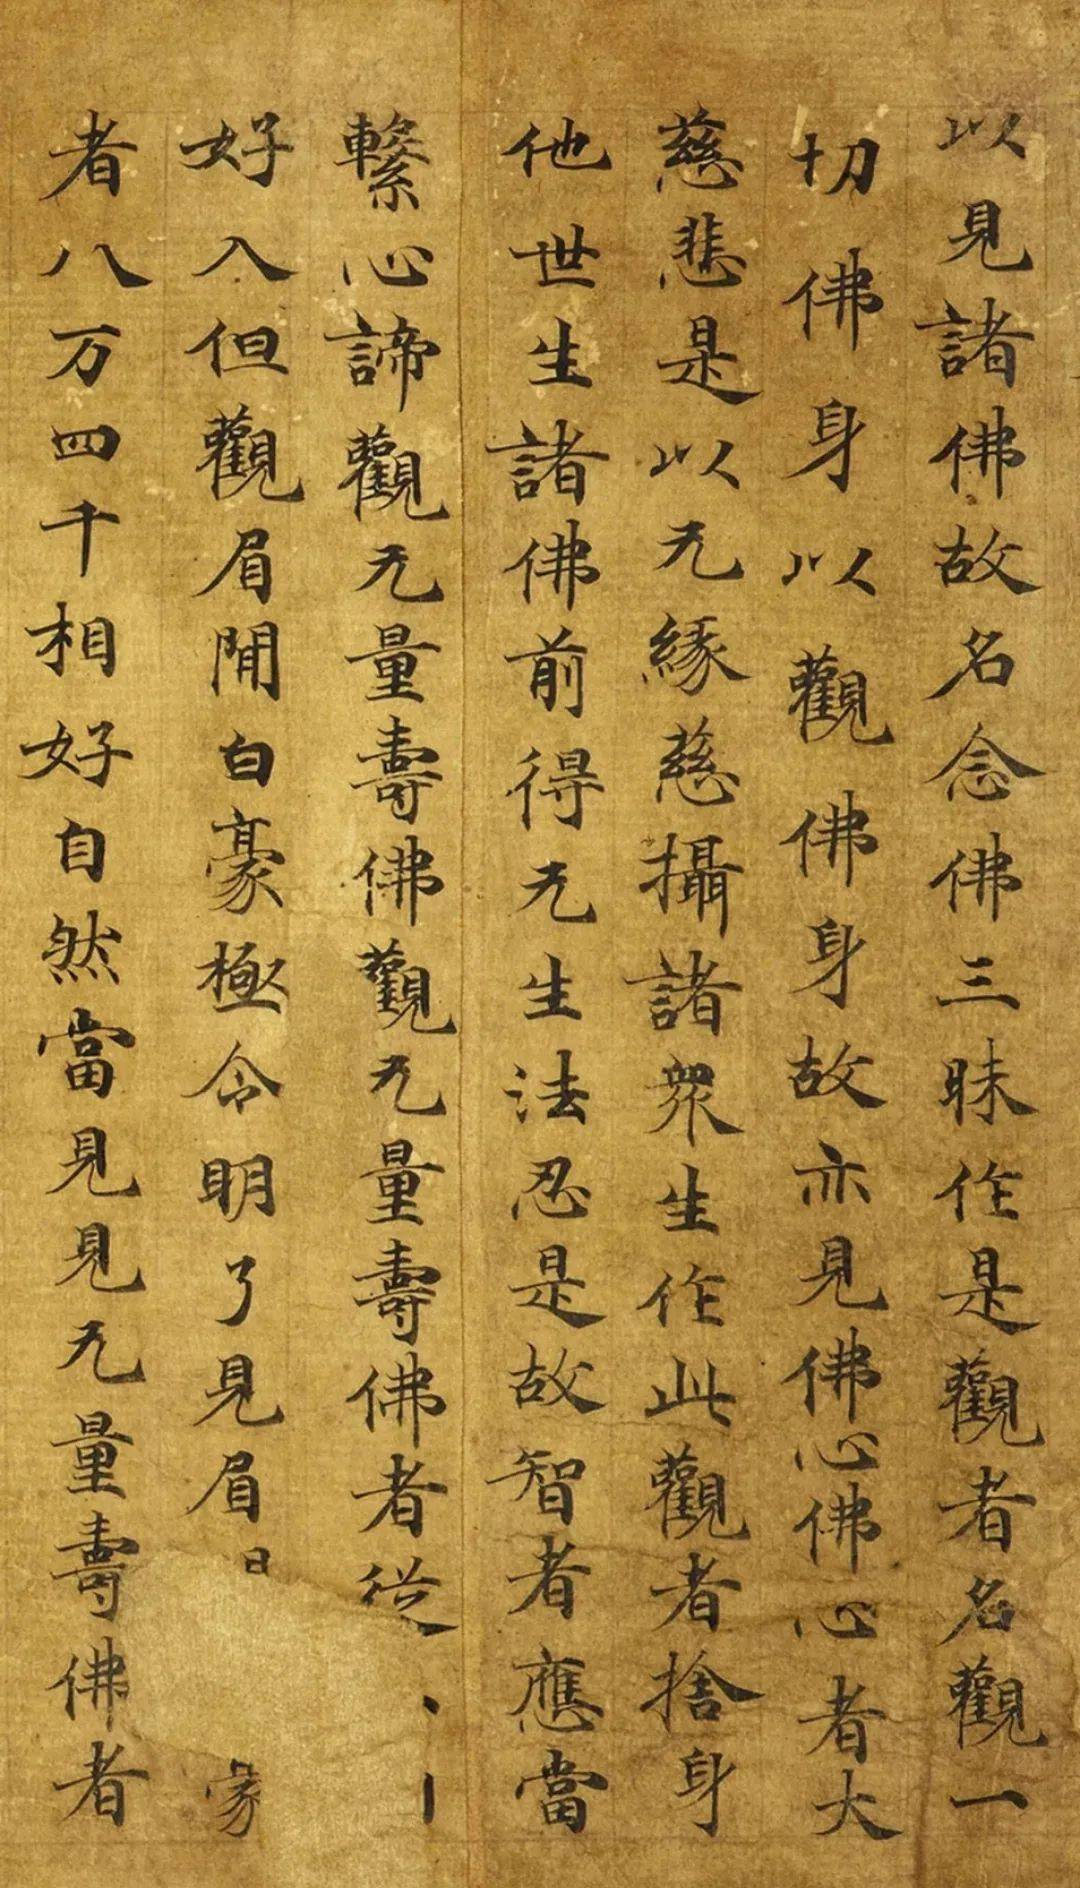 以見諸佛故名念佛三昧作是觀者名觀一
切佛身以觀佛身故亦見佛心佛心者大
慈悲是以无緣慈攝諸眾生作此觀者捨身
他世生諸佛前得无生法忍是故智者應當
繫心諦觀无量壽佛觀无量壽佛者從
好入但觀眉間白豪極令明了見眉
者八万四千相好自然當見見无量壽佛者